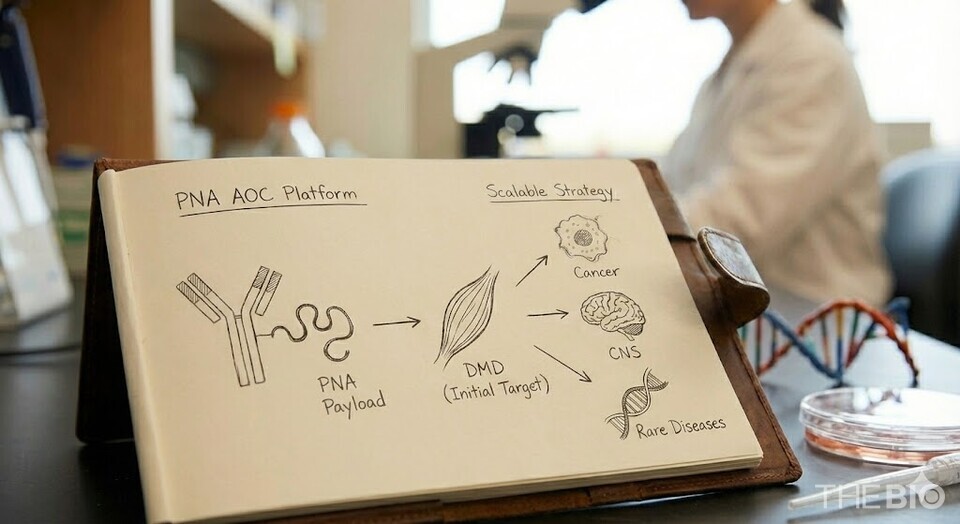 PNA AOC Platform
Scalable Strategy
PNA
Payload
DMD
(Initial Target)
Cancer
CNS
Rare Diseases
THE BIO